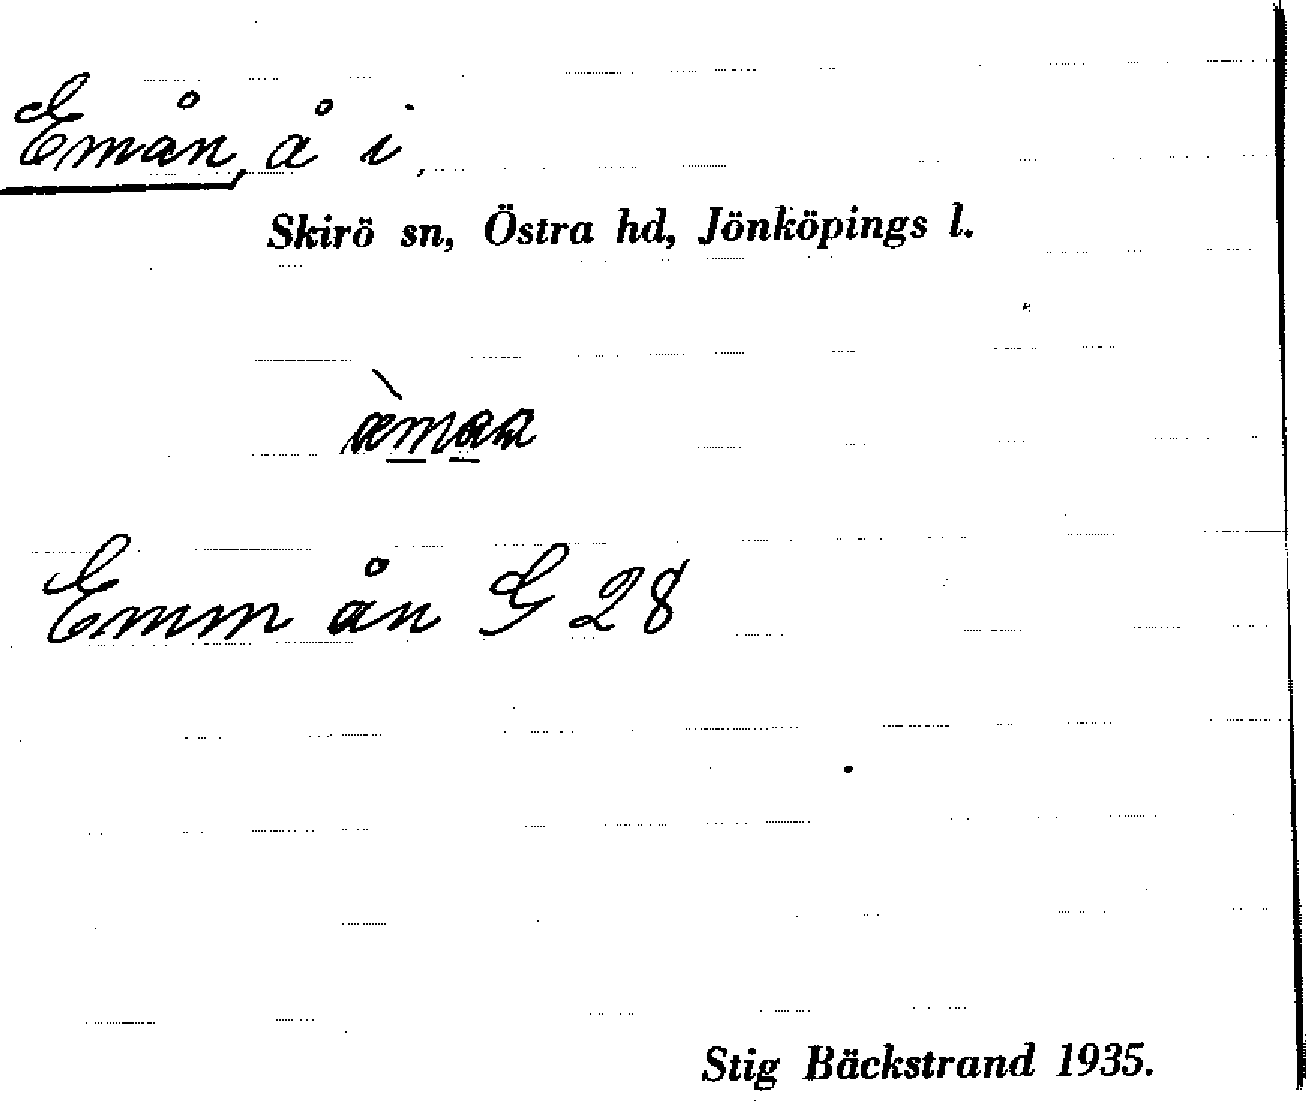 Emån, å i,
Skirö sn, Östra hd, Jönköpings l.
Emm ån G 28
Stig Bäckstrand 1935.